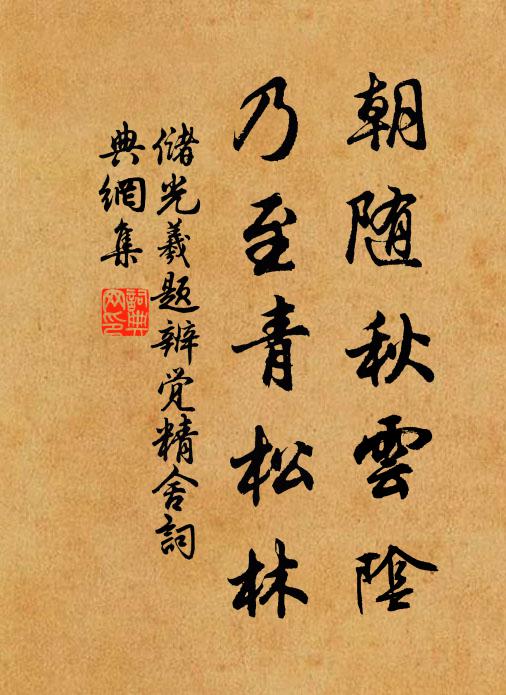 朝随秋雲陰
乃至青松林
儲光羲题辨觉精舍詞
典網集
詞典
网印